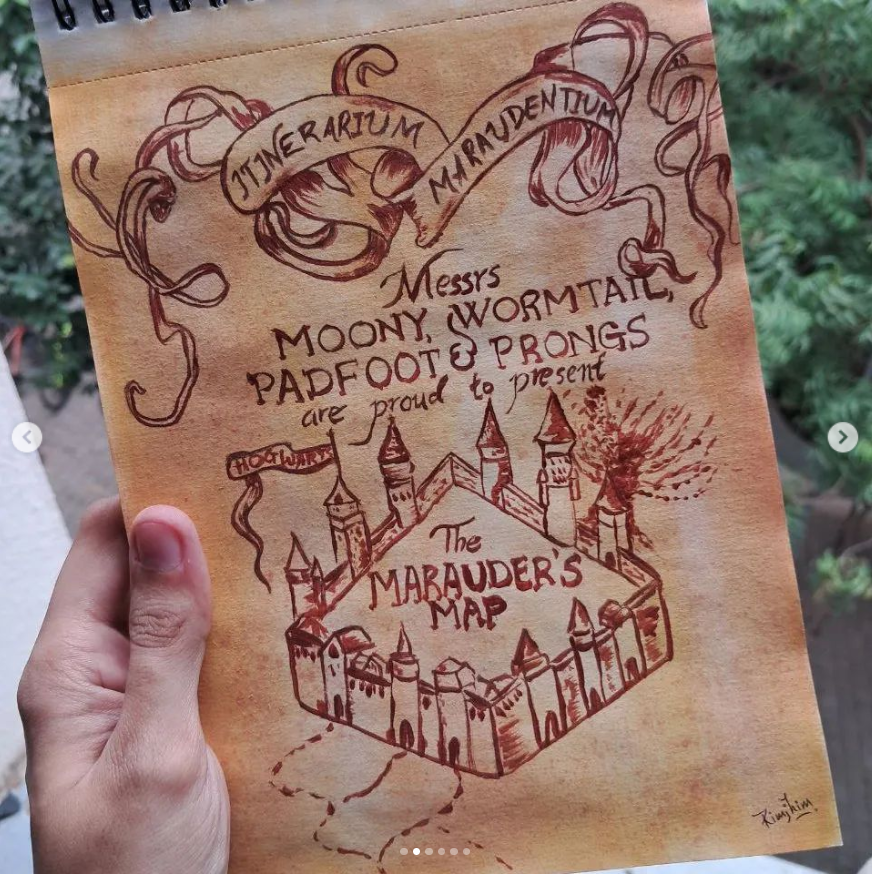 ITINERARIUM
MARAUDENTIUM
Messrs
MOONY, WORMTAIL,
PADFOOT & PRONGS
are proud to present
HOGWARTS
The
MARAUDER'S
MAP